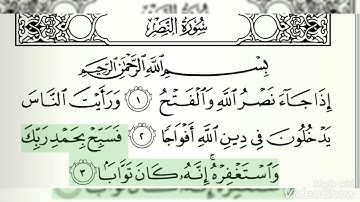 سُورَةُ النَّصْرِ
بِسْمِ اللَّهِ الرَّحْمَٰنِ الرَّحِيمِ
إِذَا جَآءَ نَصْرُ اللَّهِ وَالْفَتْحُ ١ وَرَأَيْتَ النَّاسَ
يَدْخُلُونَ فِي دِينِ اللَّهِ أَفْوَاجًا ٢ فَسَبِّحْ بِحَمْدِ رَبِّكَ
وَاسْتَغْفِرْهُ ۚ إِنَّهُ كَانَ تَوَّابًا ٣
Made with
VideoShow